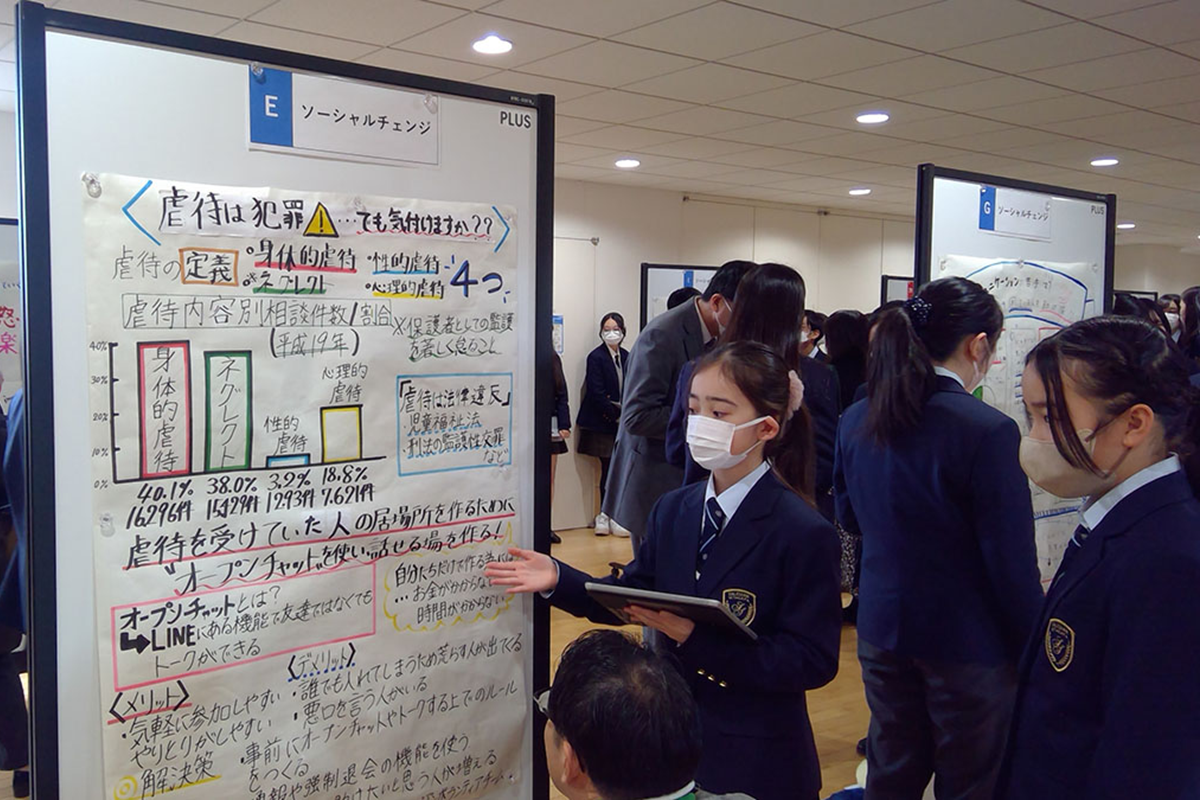 E ソーシャルチェンジ
PLUS
〈虐待は犯罪⚠…でも気付けますか??〉
虐待の定義 ・身体的虐待 ・性的虐待
・ネグレクト ・心理的虐待 4つ
虐待内容別相談件数/割合
(平成19年)
※保護者としての監護
を著しく怠ること
40%
30%
20%
10%
0%
身体的虐待
ネグレクト
性的虐待
心理的虐待
40.1% 38.0% 3.2% 18.8%
16296件 15429件 1293件 7621件
「虐待は法律違反」
・児童福祉法
・刑法の監護性交罪
など
虐待を受けていた人の居場所を作るために
"オープンチャット"を使い話せる場を作る!
オープンチャットとは?
➡LINEにある機能で友達ではなくても
トークができる
自分たちだけで作る為には
…お金がかからない
時間がかからない
〈メリット〉
・気軽に参加しやすい
やりとりがしやすい
〈デメリット〉
・誰でも入れてしまうため荒らす人が出てくる
・悪口を言う人がいる
◎解決策
・事前にオープンチャットやトークする上でのルール
をつくる
や強制退会の機能を使う
たいと思う人が増える
G ソーシャルチェンジ
PLUS